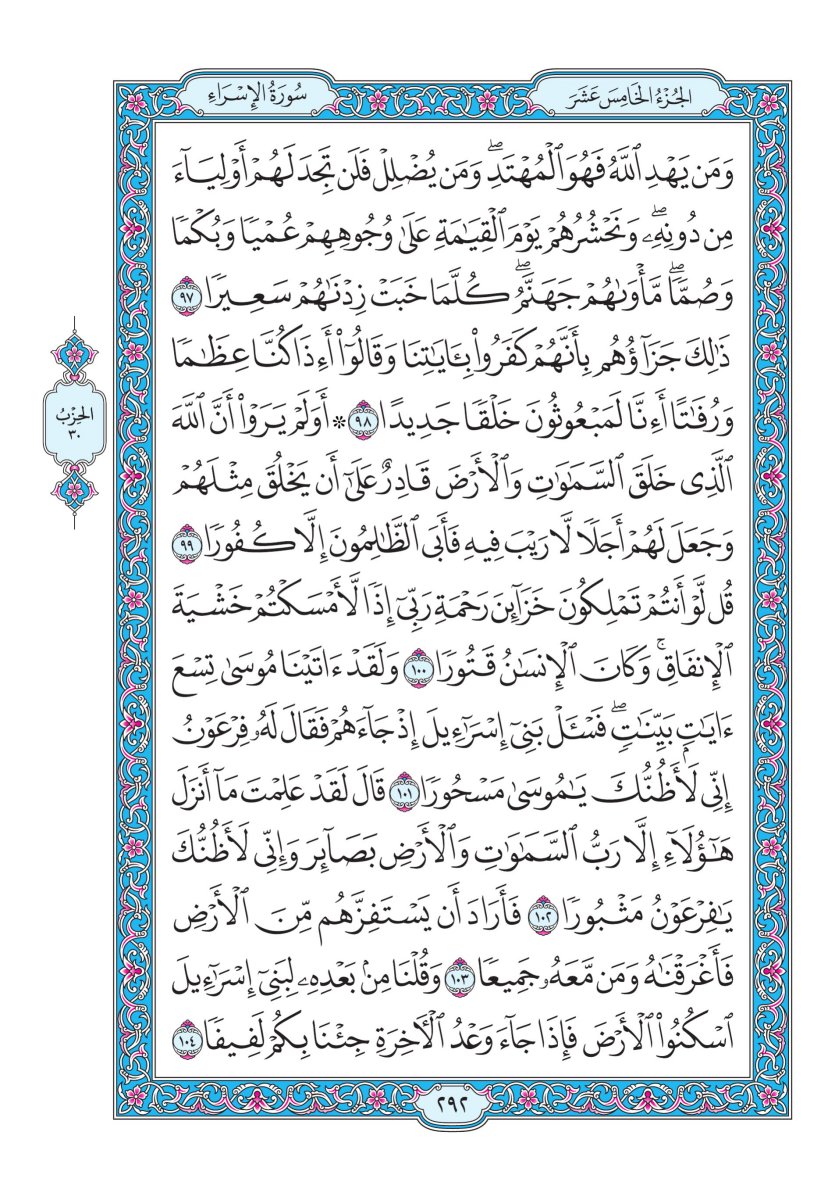 الجُزْءُ الخَامِسَ عَشَرَ
سُورَةُ الإِسْرَاءِ
وَمَن يَهْدِ ٱللَّهُ فَهُوَ ٱلْمُهْتَدِۖ وَمَن يُضْلِلْ فَلَن تَجِدَ لَهُمْ أَوْلِيَآءَ
مِن دُونِهِۦۖ وَنَحْشُرُهُمْ يَوْمَ ٱلْقِيَٰمَةِ عَلَىٰ وُجُوهِهِمْ عُمْيًا وَبُكْمًا
وَصُمًّاۖ مَّأْوَىٰهُمْ جَهَنَّمُۖ كُلَّمَا خَبَتْ زِدْنَٰهُمْ سَعِيرًا ٩٧
ذَٰلِكَ جَزَآؤُهُم بِأَنَّهُمْ كَفَرُواْ بِـَٔايَٰتِنَا وَقَالُوٓاْ أَءِذَا كُنَّا عِظَٰمًا
وَرُفَٰتًا أَءِنَّا لَمَبْعُوثُونَ خَلْقًا جَدِيدًا ٩٨ * أَوَلَمْ يَرَوْاْ أَنَّ ٱللَّهَ
ٱلَّذِى خَلَقَ ٱلسَّمَٰوَٰتِ وَٱلْأَرْضَ قَادِرٌ عَلَىٰٓ أَن يَخْلُقَ مِثْلَهُمْ
وَجَعَلَ لَهُمْ أَجَلًا لَّا رَيْبَ فِيهِ فَأَبَى ٱلظَّٰلِمُونَ إِلَّا كُفُورًا ٩٩
قُل لَّوْ أَنتُمْ تَمْلِكُونَ خَزَآئِنَ رَحْمَةِ رَبِّىٓ إِذًا لَّأَمْسَكْتُمْ خَشْيَةَ
ٱلْإِنفَاقِۚ وَكَانَ ٱلْإِنسَٰنُ قَتُورًا ١٠٠ وَلَقَدْ ءَاتَيْنَا مُوسَىٰ تِسْعَ
ءَايَٰتٍۭ بَيِّنَٰتٍۖ فَسْـَٔلْ بَنِىٓ إِسْرَٰٓءِيلَ إِذْ جَآءَهُمْ فَقَالَ لَهُۥ فِرْعَوْنُ
إِنِّى لَأَظُنُّكَ يَٰمُوسَىٰ مَسْحُورًا ١٠١ قَالَ لَقَدْ عَلِمْتَ مَآ أَنزَلَ
هَٰٓؤُلَآءِ إِلَّا رَبُّ ٱلسَّمَٰوَٰتِ وَٱلْأَرْضِ بَصَآئِرَ وَإِنِّى لَأَظُنُّكَ
يَٰفِرْعَوْنُ مَثْبُورًا ١٠٢ فَأَرَادَ أَن يَسْتَفِزَّهُم مِّنَ ٱلْأَرْضِ
فَأَغْرَقْنَٰهُ وَمَن مَّعَهُۥ جَمِيعًا ١٠٣ وَقُلْنَا مِنۢ بَعْدِهِۦ لِبَنِىٓ إِسْرَٰٓءِيلَ
ٱسْكُنُواْ ٱلْأَرْضَ فَإِذَا جَآءَ وَعْدُ ٱلْأَخِرَةِ جِئْنَا بِكُمْ لَفِيفًا ١٠٤
الحِزْبُ
٣٠
٢٩٢